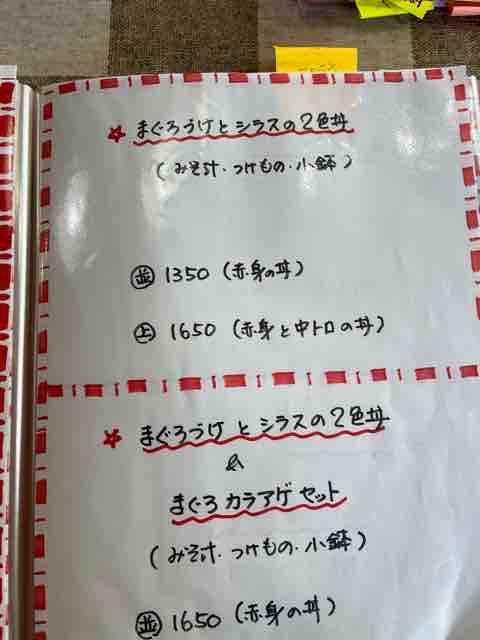 ★ まぐろづけとシラスの2色丼
(みそ汁・つけもの・小鉢)
㊤並 1350 (赤身の丼)
㊤ 1650 (赤身と中トロの丼)
★ まぐろづけとシラスの2色丼
&
まぐろカラアゲセット
(みそ汁・つけもの・小鉢)
並 1650 (赤身の丼)